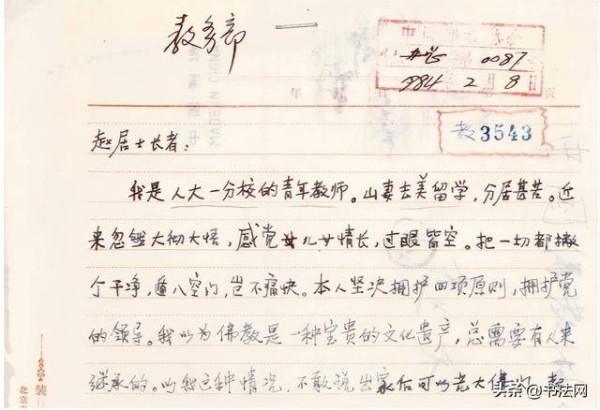 教务部
0087
1984年2月8日
教3543
赵居士长者：
我是人大一分校的青年教师。山妻去美留学，分居甚苦。近
来忽然大彻大悟，感觉女儿女情长，过眼皆空。把一切都撇
个干净，遁入空门，岂不痛快。本人坚决拥护四项原则，拥护党
的领导。我以为佛教是一种宝贵的文化遗产，总需要有人来
继承的。以我这种情况，不敢说出家后可以光大佛门，
装
北京市
MADE IN CHINA
头条@书法网